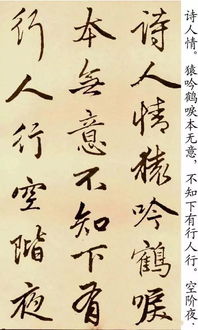 诗人情。猿吟鹤唳本无意，不知下有行人行。空阶夜，
詩人情猿吟鶴唳
本無意不知下有
行人行空階夜